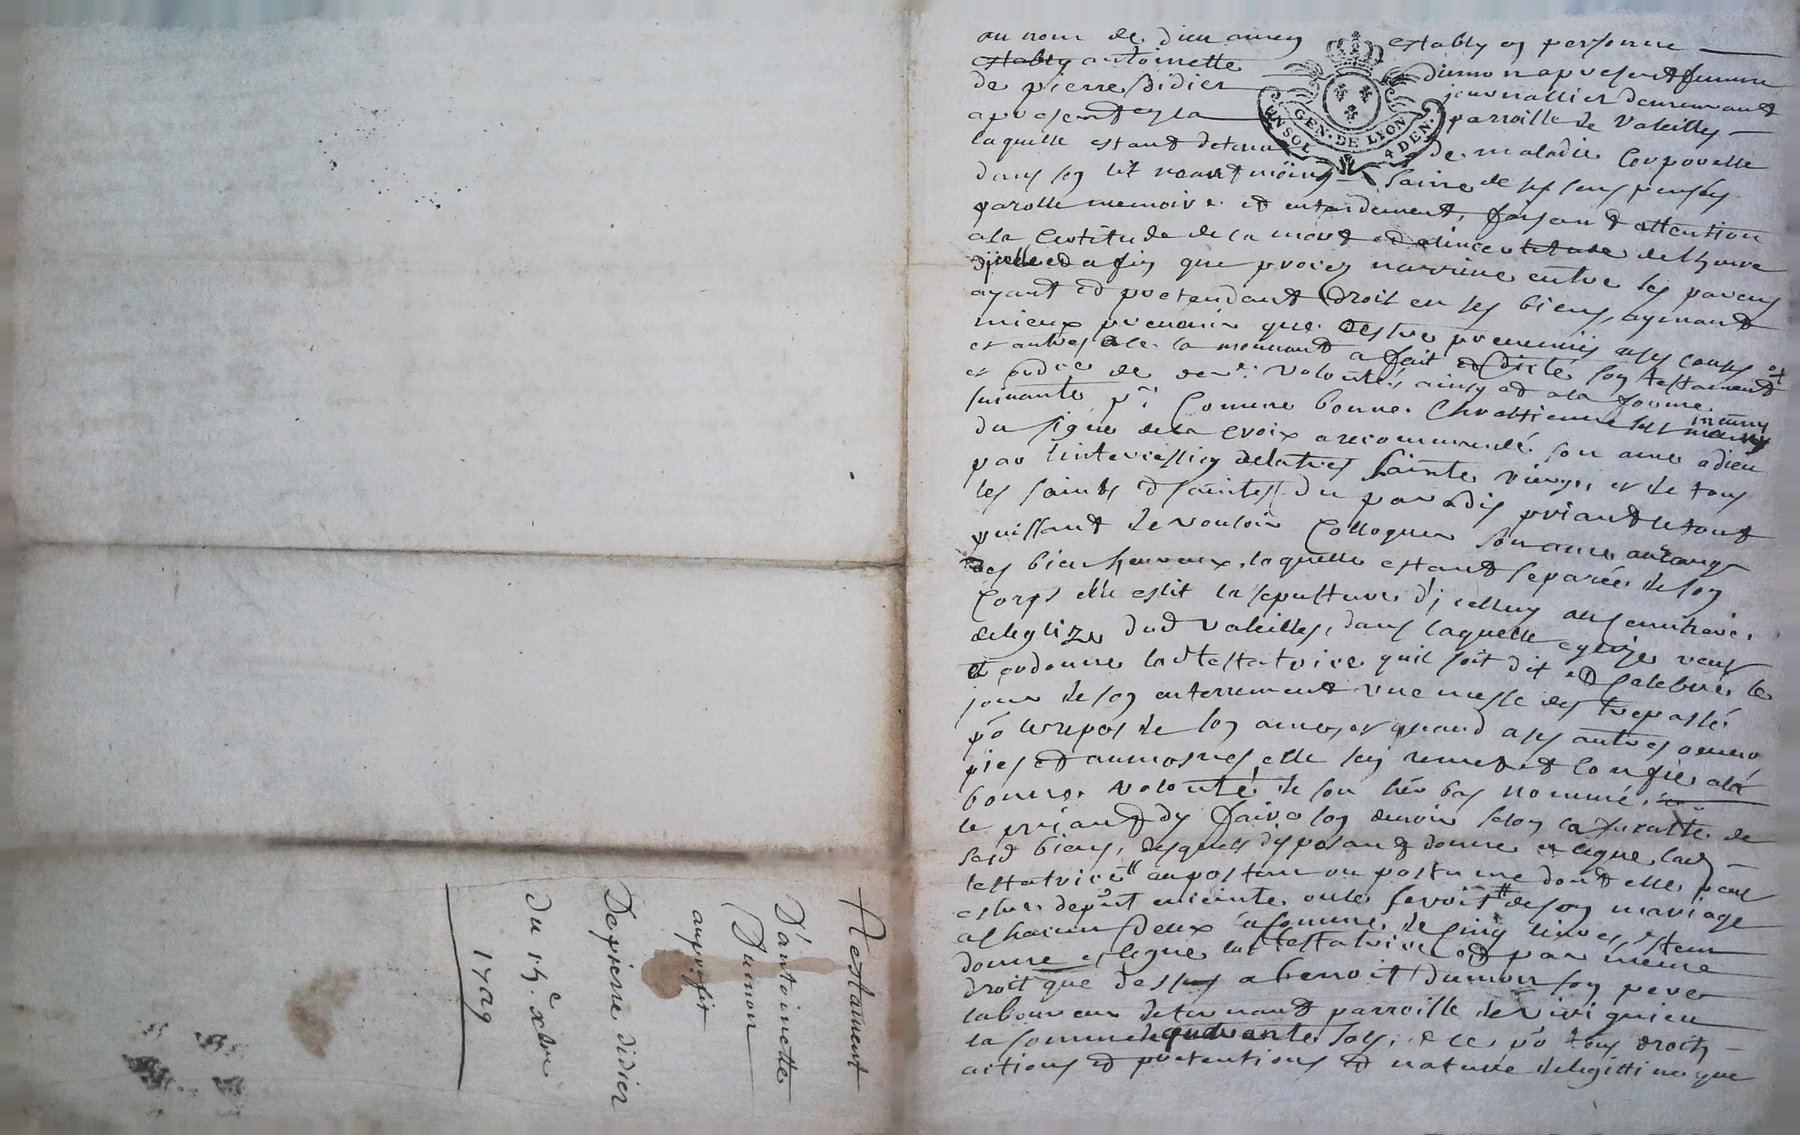 Testament
D'antoinette
Dumon
au profit
De pierre didier
du 15e xbre
1729
au nom de dieu amen establÿ en personne
establÿ antoinette dumon a present femme
de pierre didier journallier demeurant
a present en la parroisse de Valeilles
laquelle estant detenue de maladie Corporelle
dans son lit neantmoins saine de ses sens pensées
parolle memoire et entendement, faisant attention
a la Certitude de la mort et a lincertitude de lheure
d'jcelle et afin que procez narrive entre ses parens
ayant et pretendant droit en ses biens, aymant
mieux prevenir que destre prevenue a ses causes et
et autres a ce la mouvant a fait et dicte son testament
et ordre de der.e volonté ainsy et a la forme
suivante p.r Comme bonne Chrestienne sest munÿ
du signe de la croix a recommandé son ame a dieu
par lintercession de la tres Sainte vierge, et de tous
les saints et saintes du paradis priant le tout
puissant de vouloir Colloquer son ame au rang
des bienheureux, laquelle estant separée de son
Corps elle eslit la sepulture d'jcelluy au Cimetiere
de leglize dud Valeilles, dans laquelle eglize veut
et ordonne lad testatrice quil soit dit et Celebré le
jour de son enterrement une messe des trepassés
po le repos de son ame, et quand a ses autres oeuvres
pies et aumosnes elle sen remet et Confie a la
bonne volonté de son hér bas nommé
le priant dy faire son devoir selon la faculté de
sesd biens, desquels disposant donne et legue lad
testatrice au postume ou postume dont elle peut
estre de pnt enceinte ou le seroit de son mariage
a chacun deux la somme de Cinq livres, Item
donne et legue lad testatrice et par mesme
droit que dessus a benoit dumon son pere
laboureur demeurant parroisse de Virignieu
la somme de quarante sols, & ce po tous droits
actions et pretentions et nature de legittime que
GEN. DE LYON
UN SOL 4 DEN.